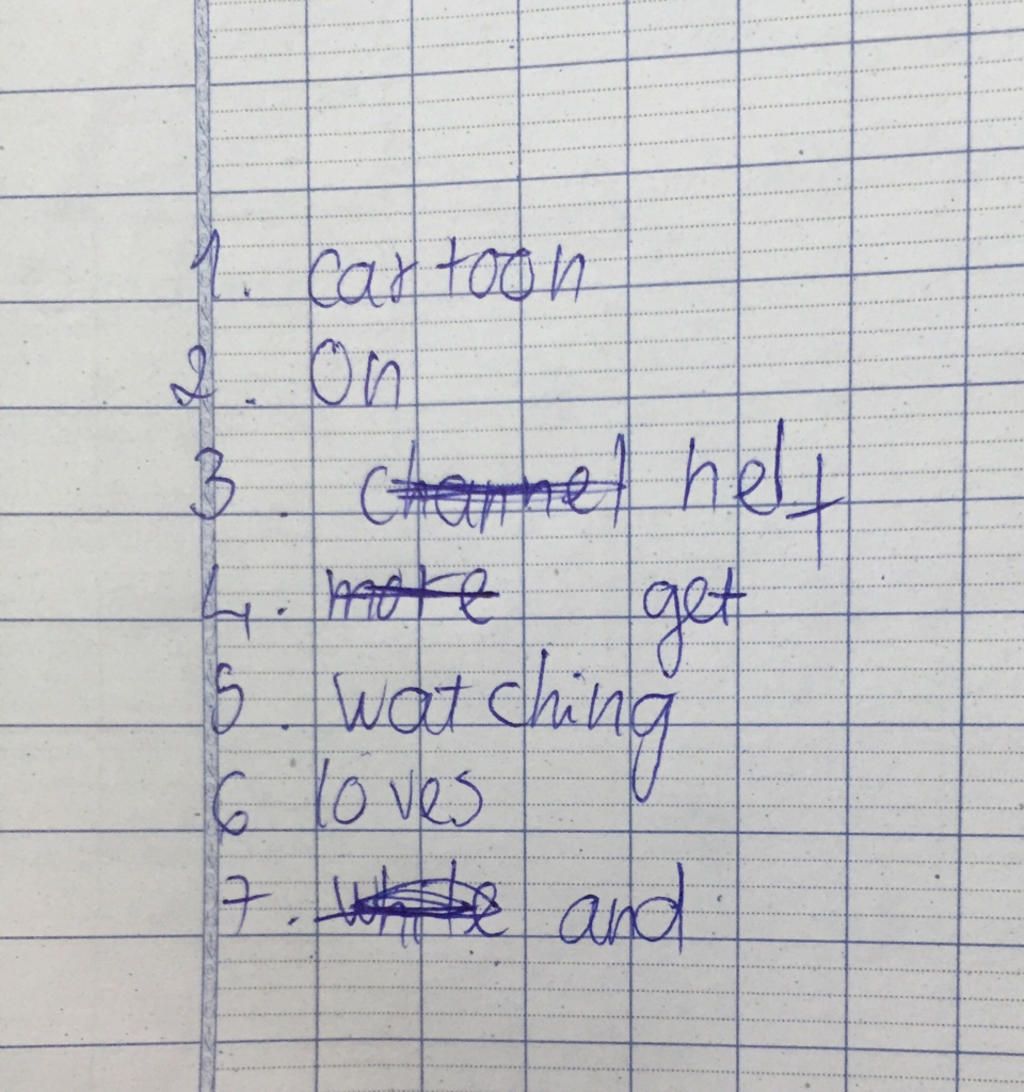 1. cartoon
2. On
3. channel help
4. more get
5. watching
6 loves
7. white and